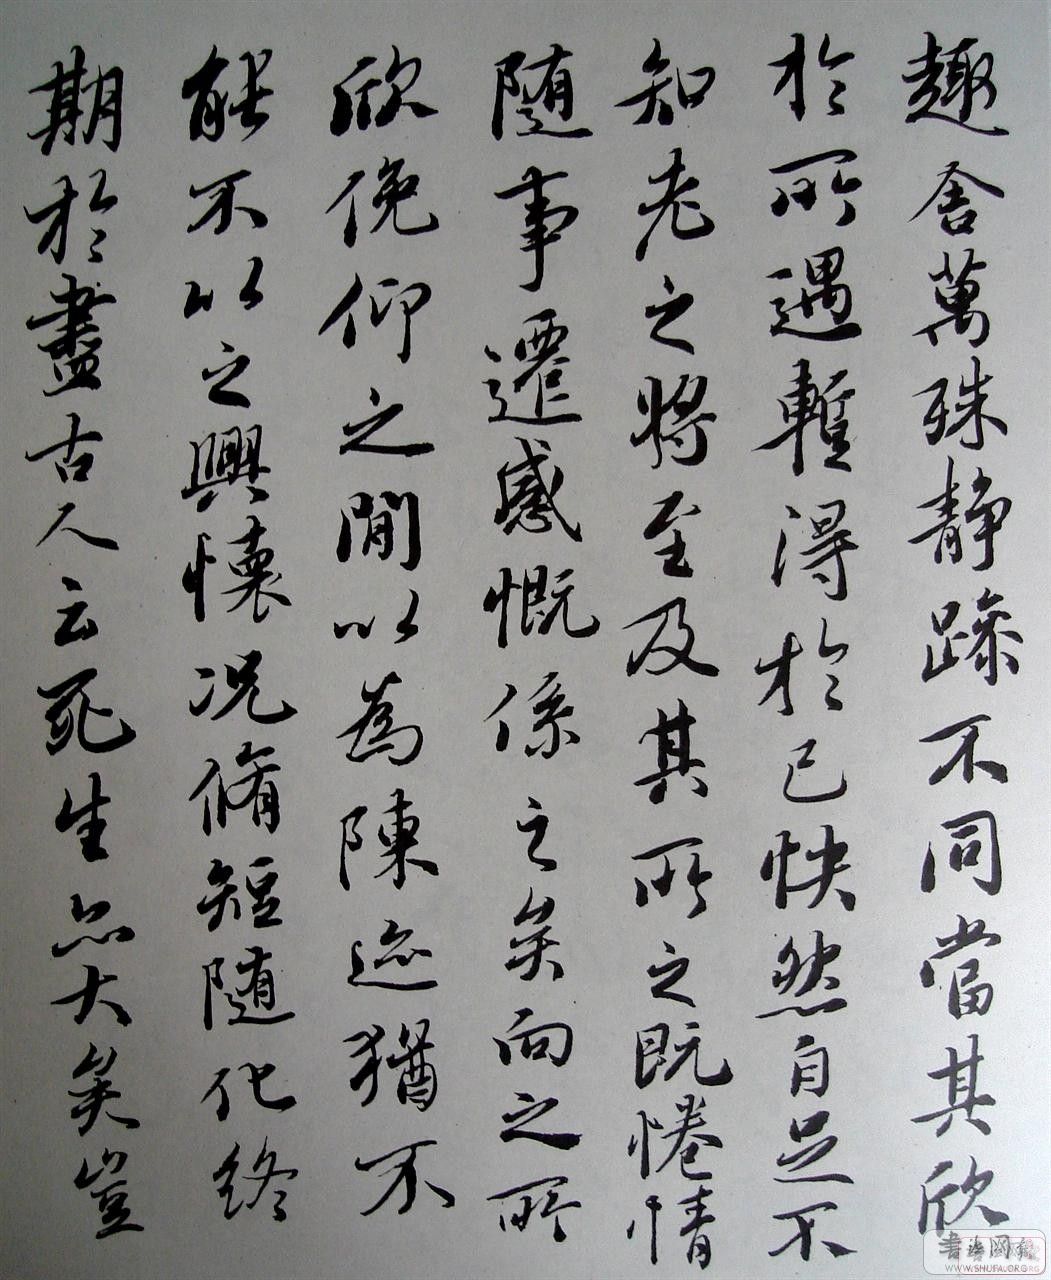 趣舍萬殊靜躁不同當其欣
於所遇暫得於己快然自足不
知老之將至及其所之既惓情
隨事遷感慨係之矣向之所
欣俛仰之閒以為陳迹猶不
能不以之興懷況脩短隨化終
期於盡古人云死生亦大矣豈
書法國報
WWW.SHUFA.ORG